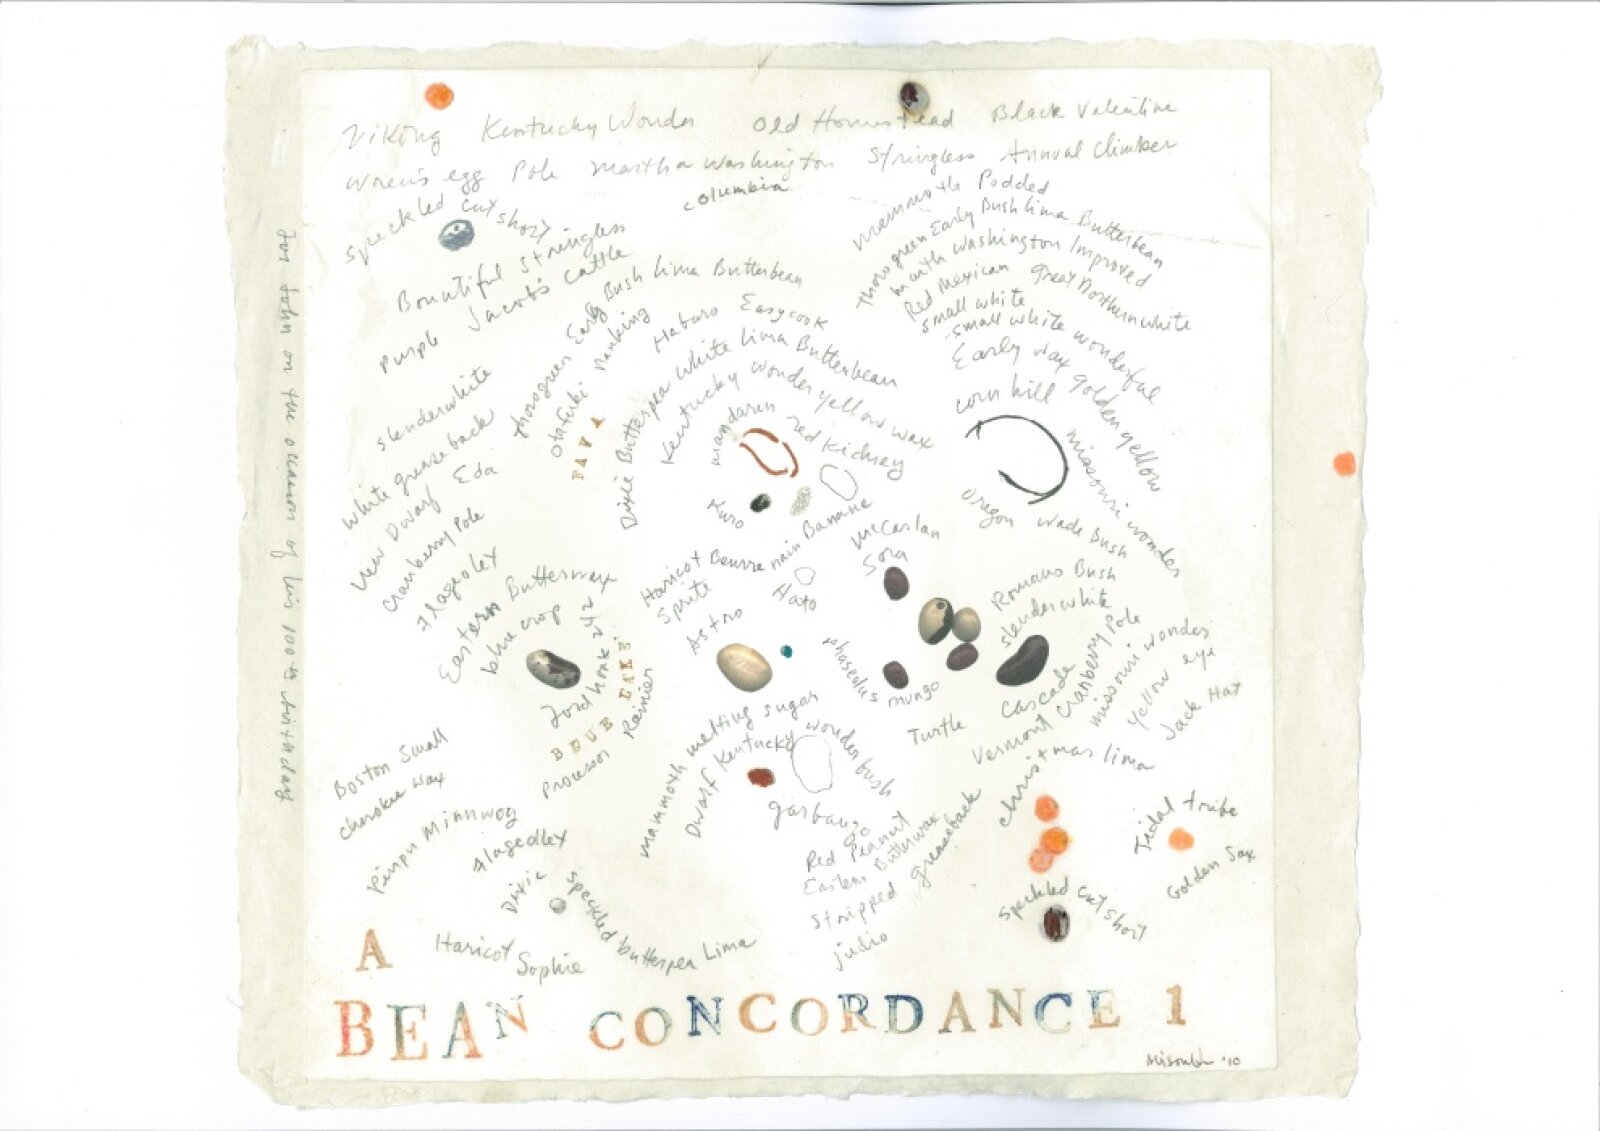 Viking Kentucky Wonder Old Homestead Black Valentine
Wren's egg Pole Martha Washington Stringless Annual Climber
Columbia
Speckled cut short
Bountiful Stringless
Purple Jacob's Cattle
Mammoth Podded
Thorogreen Early Bush lima Butterbean
with Washington Improved
Red Mexican Great Northern white
small white
small white wonderful
Early wax golden yellow
corn hill
missouri wonder
Oregon wade Bush
Thorogreen Early Bush lima Butterbean
Otafuki nanking
FAVA
Haburo Easycook
Dixie Butterpea white lima Butterbean
Kentucky wonder yellow wax
mandarin red kidney
Kuro
slenderwhite
white greaseback
New Dwarf Eda
cranberry Pole
flageolet
Eastern Butterwax
blue crop
Fordhook 242
BLUE LAKE
Processor Rainier
Haricot Beurre nain Banane
Sprite
Astro
Hato
McCaslan
Sora
phaseolus mungo
Romano Bush
slenderwhite
Cascade
Vermont Cranberry Pole
missouri wonder
yellow eye
Jack Hat
Turtle
christmas lima
mammoth melting sugar
Dwarf Kentucky wonder bush
garbanzo
Red Peanut
Eastern Butterwax
Stripped greaseback
judio
Boston Small
cherokee wax
Flagedlex
Dixie speckled butterpea Lima
Haricot Sophie
Tidal tribe
Golden Sax
Speckled cut short
For John on the occasion of his 100th birthday
A
BEAN CONCORDANCE 1
'10